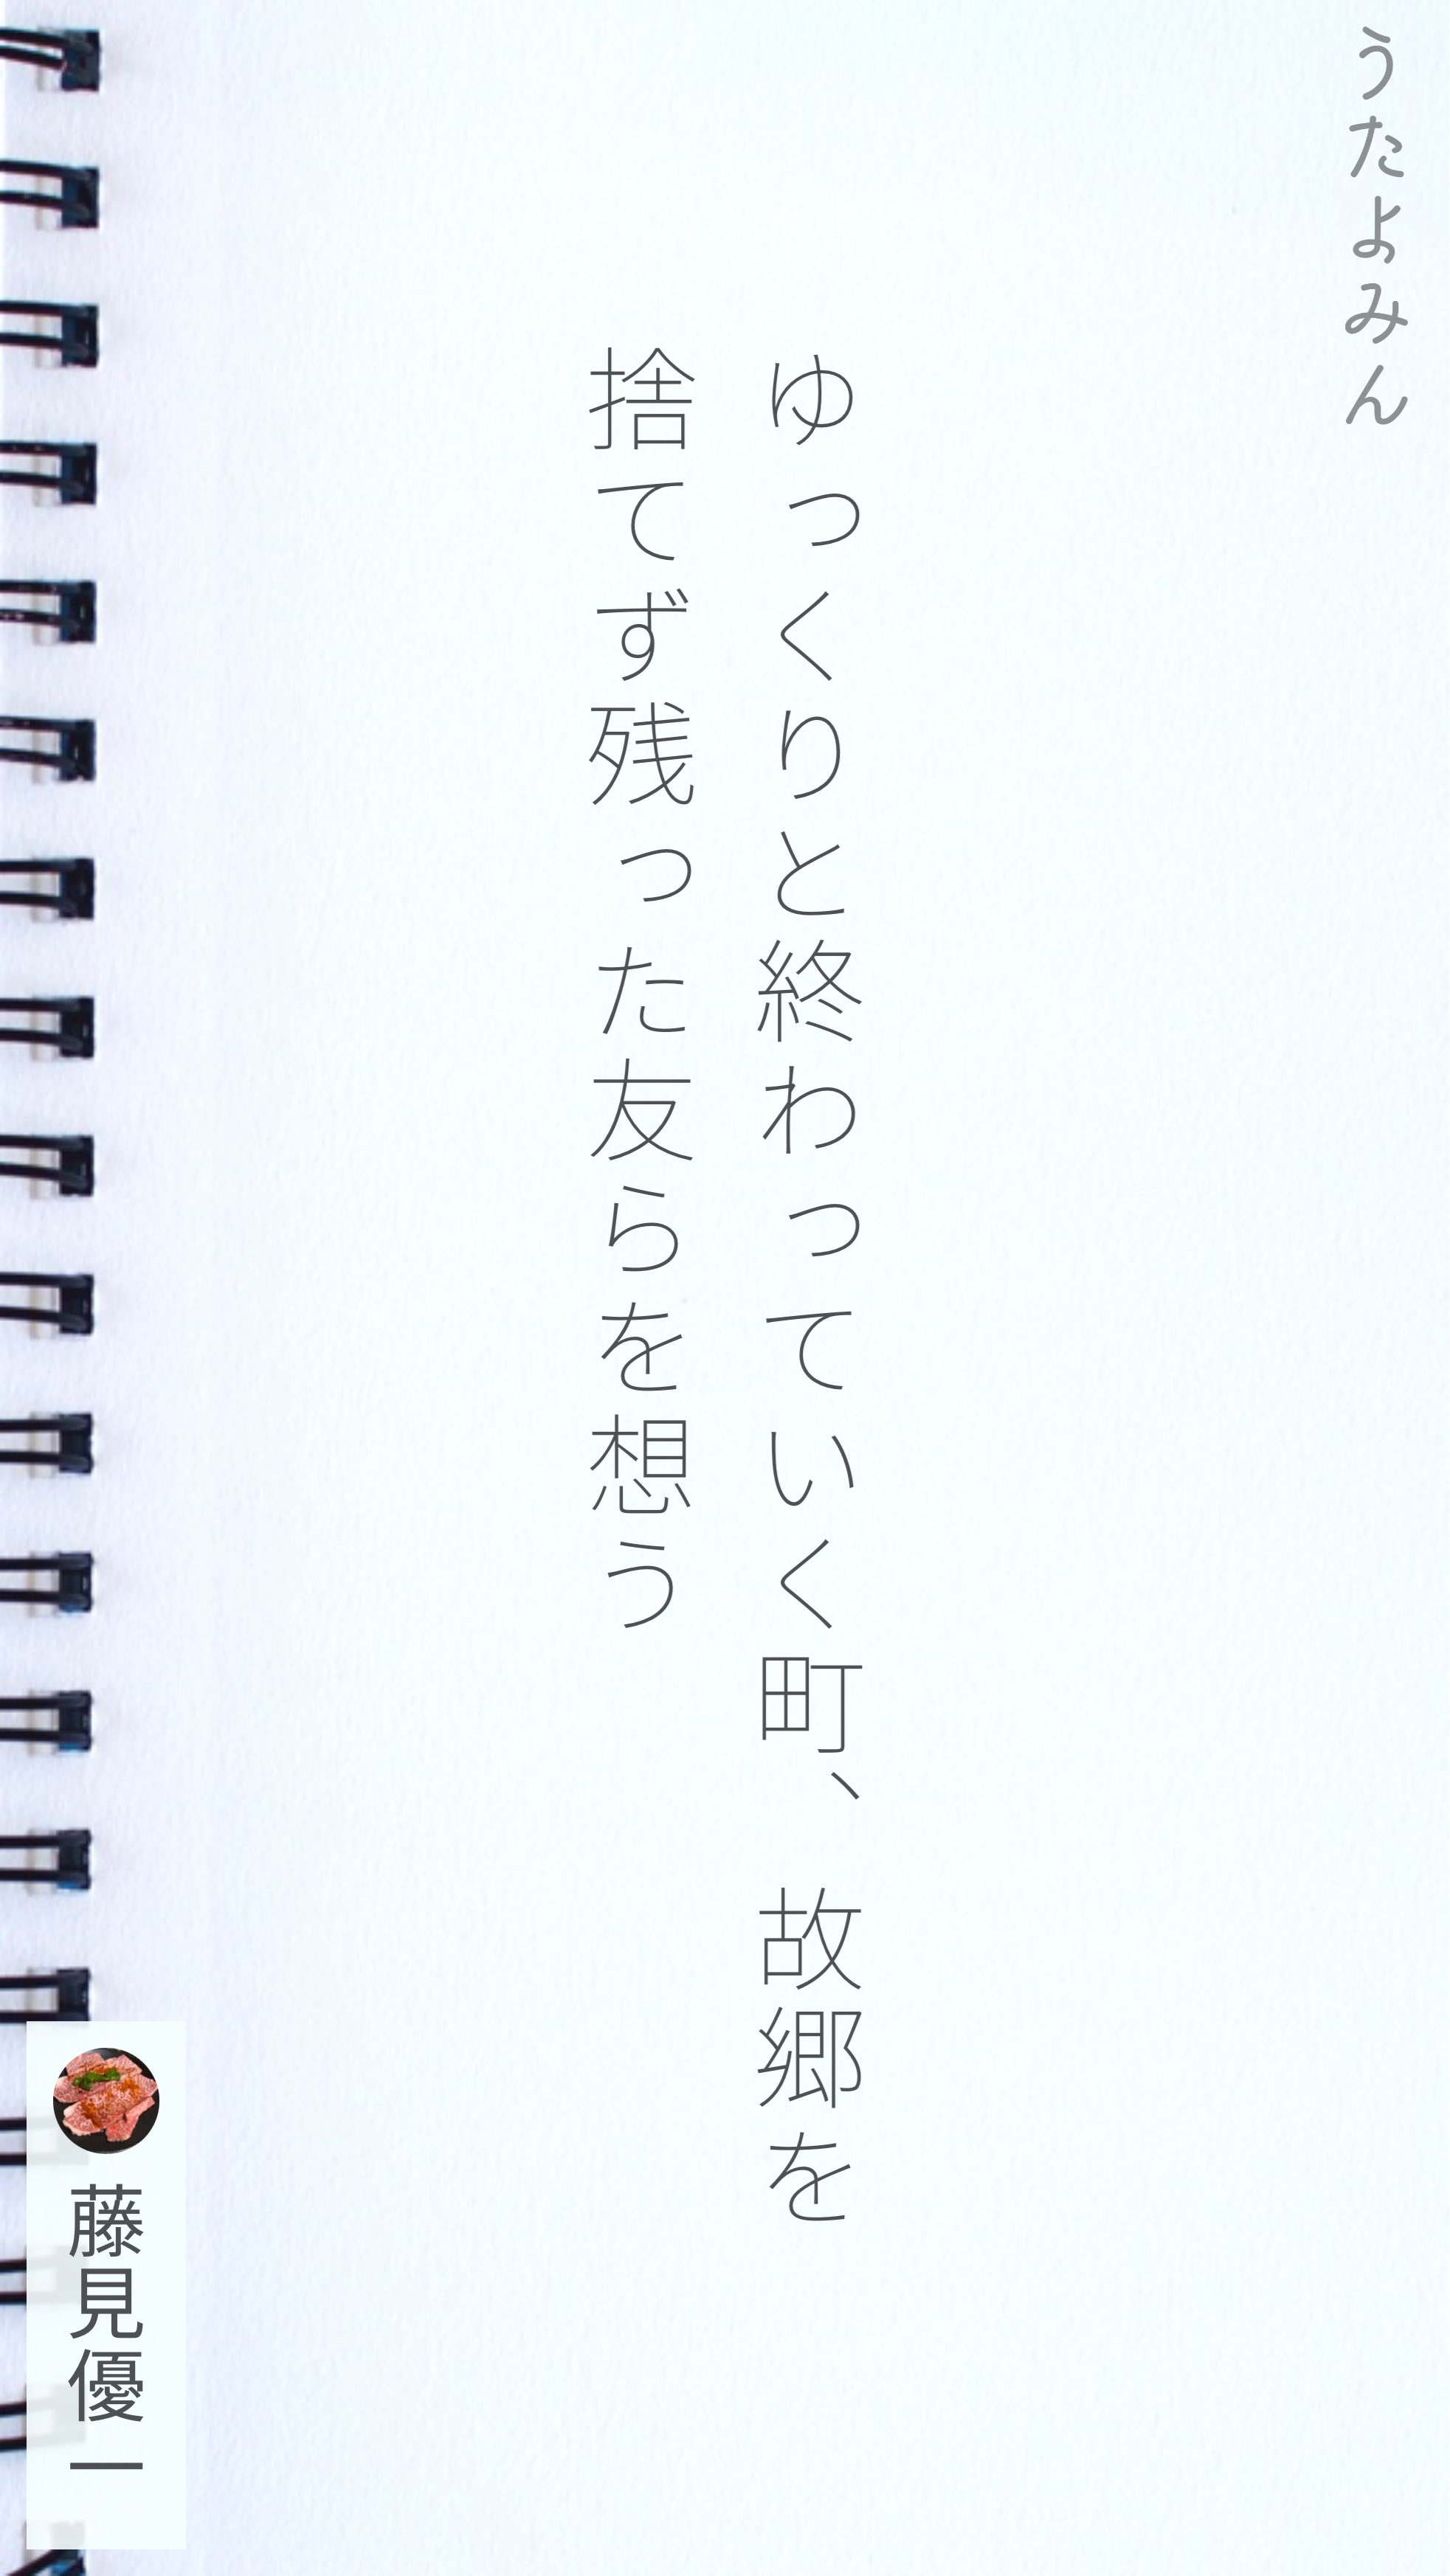 うたよみん
ゆっくりと終わっていく町、故郷を
捨てず残った友らを想う
藤見優一